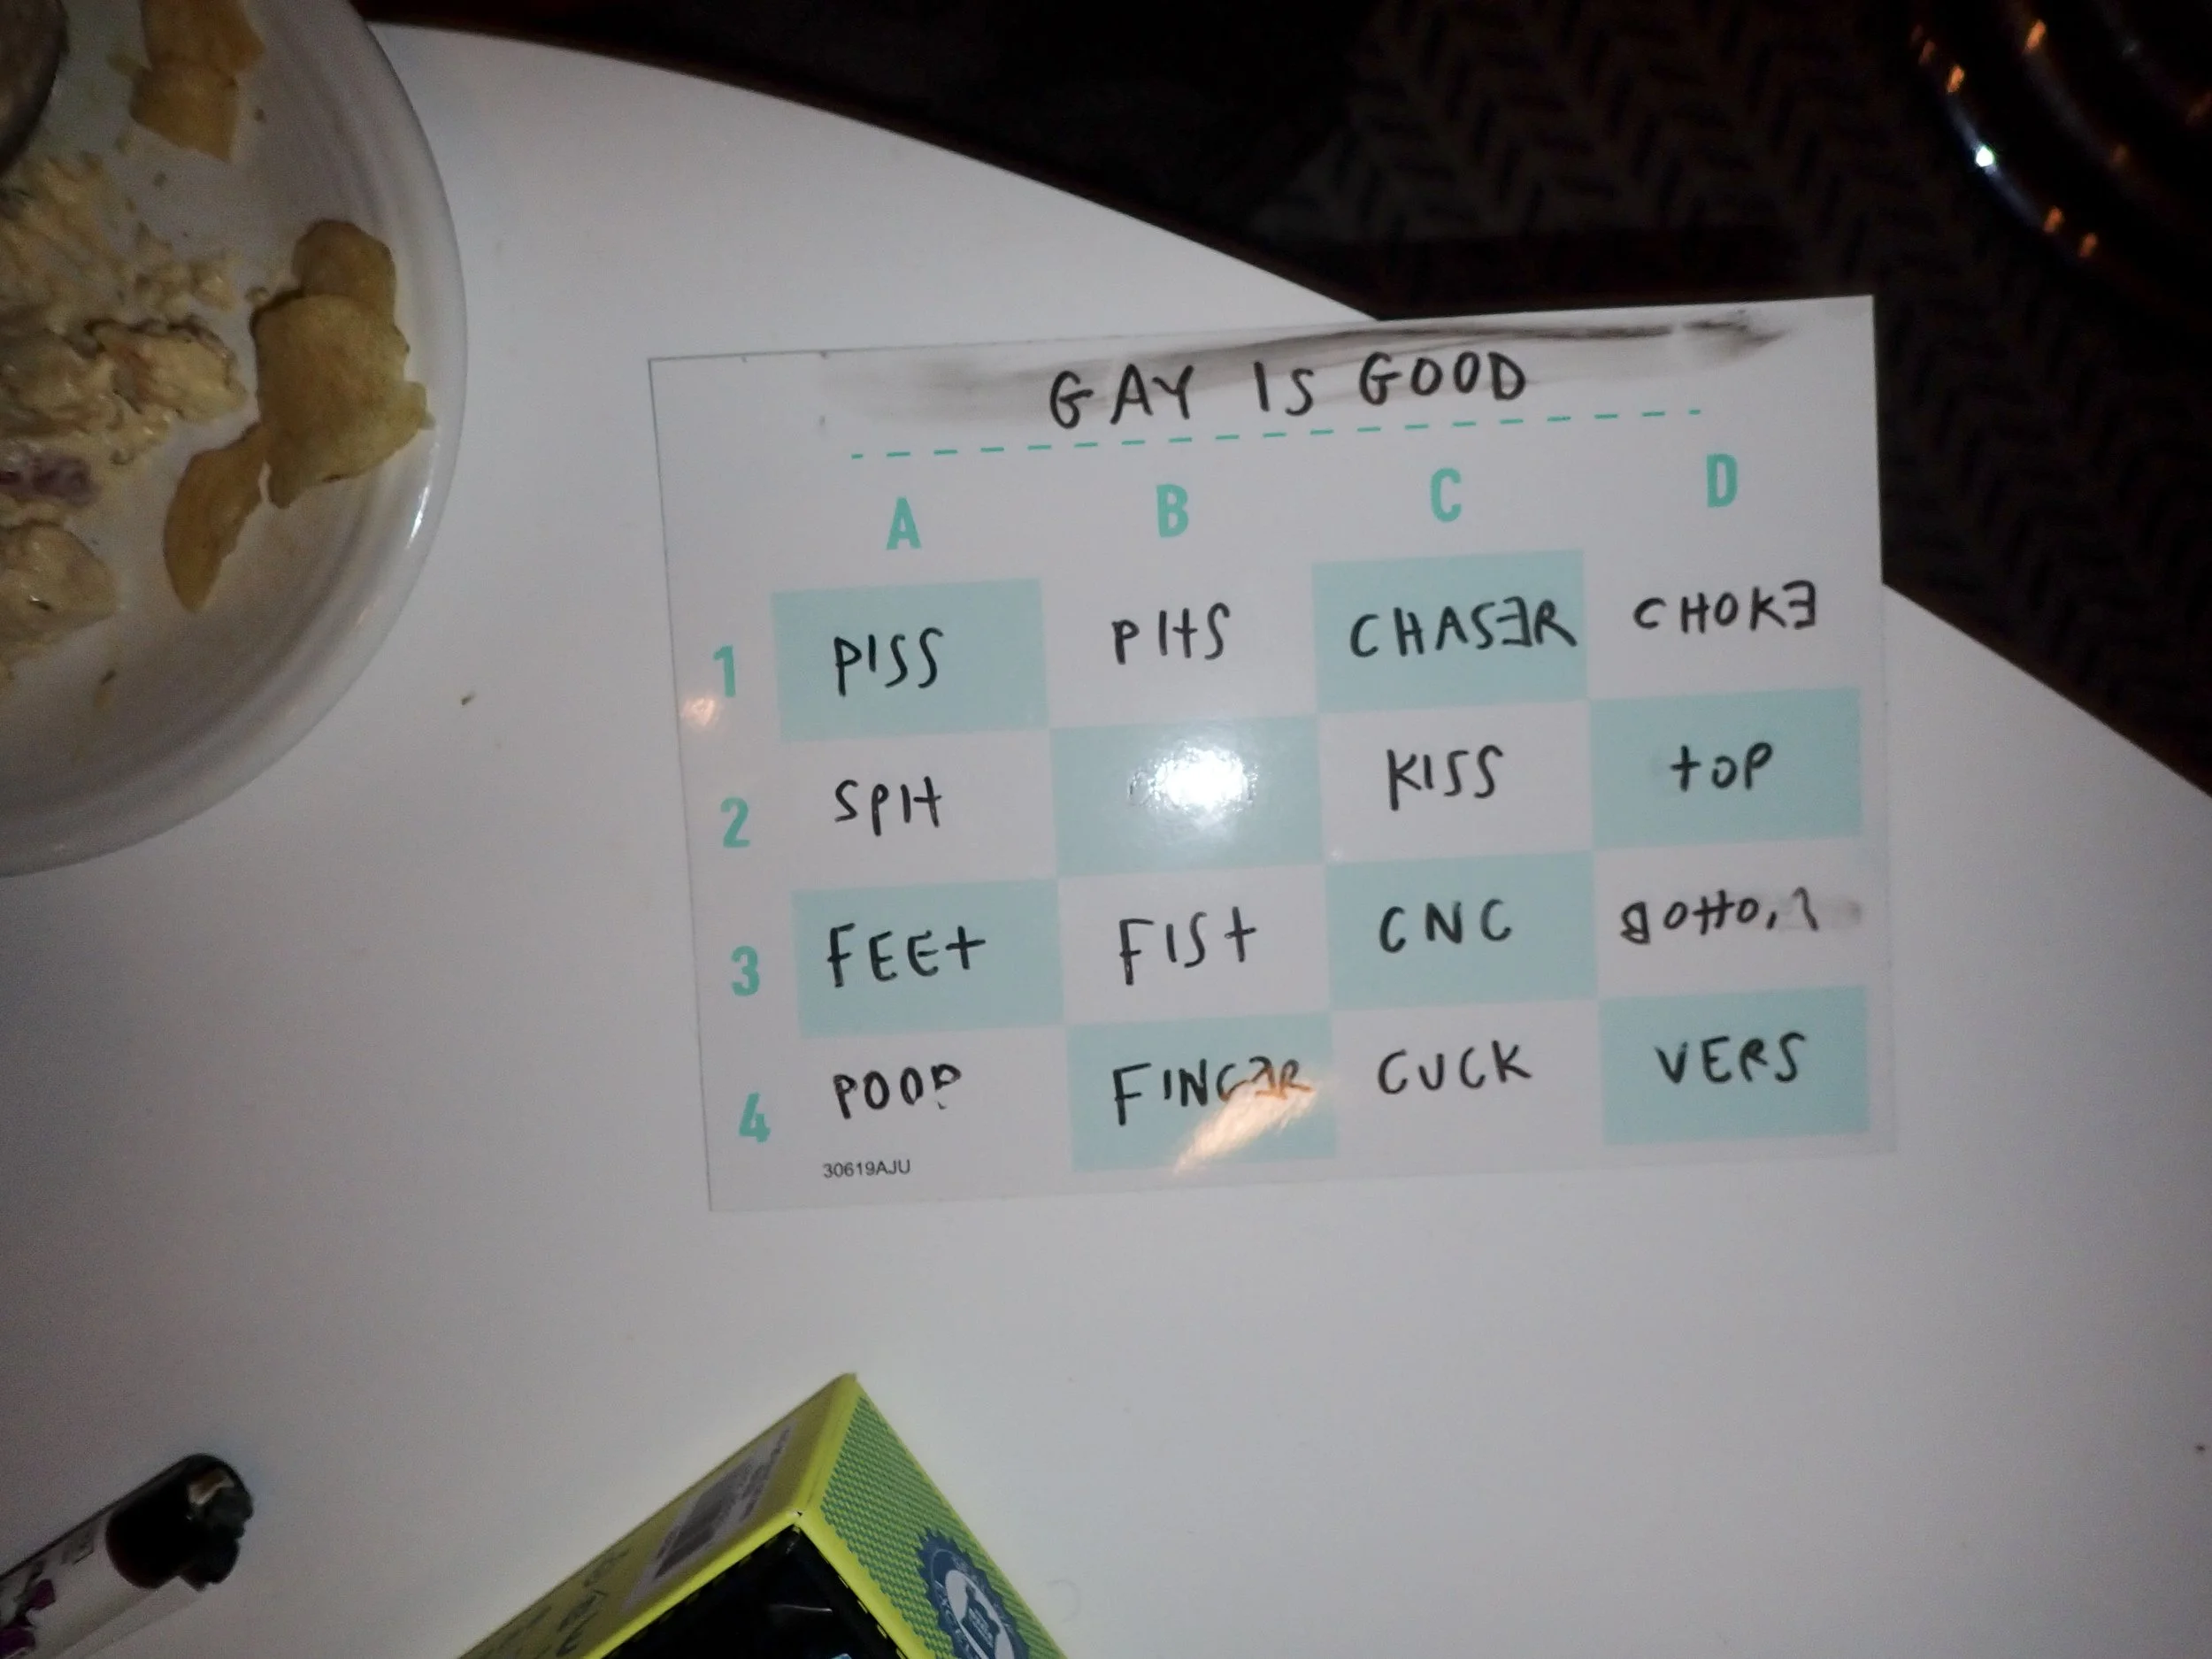 GAY IS GOOD
A B C D
1 PISS PITS CHASER CHOKE
2 SPIT KISS TOP
3 FEET FIST CNC
4 POOP FINGER CUCK VERS
30619AJU